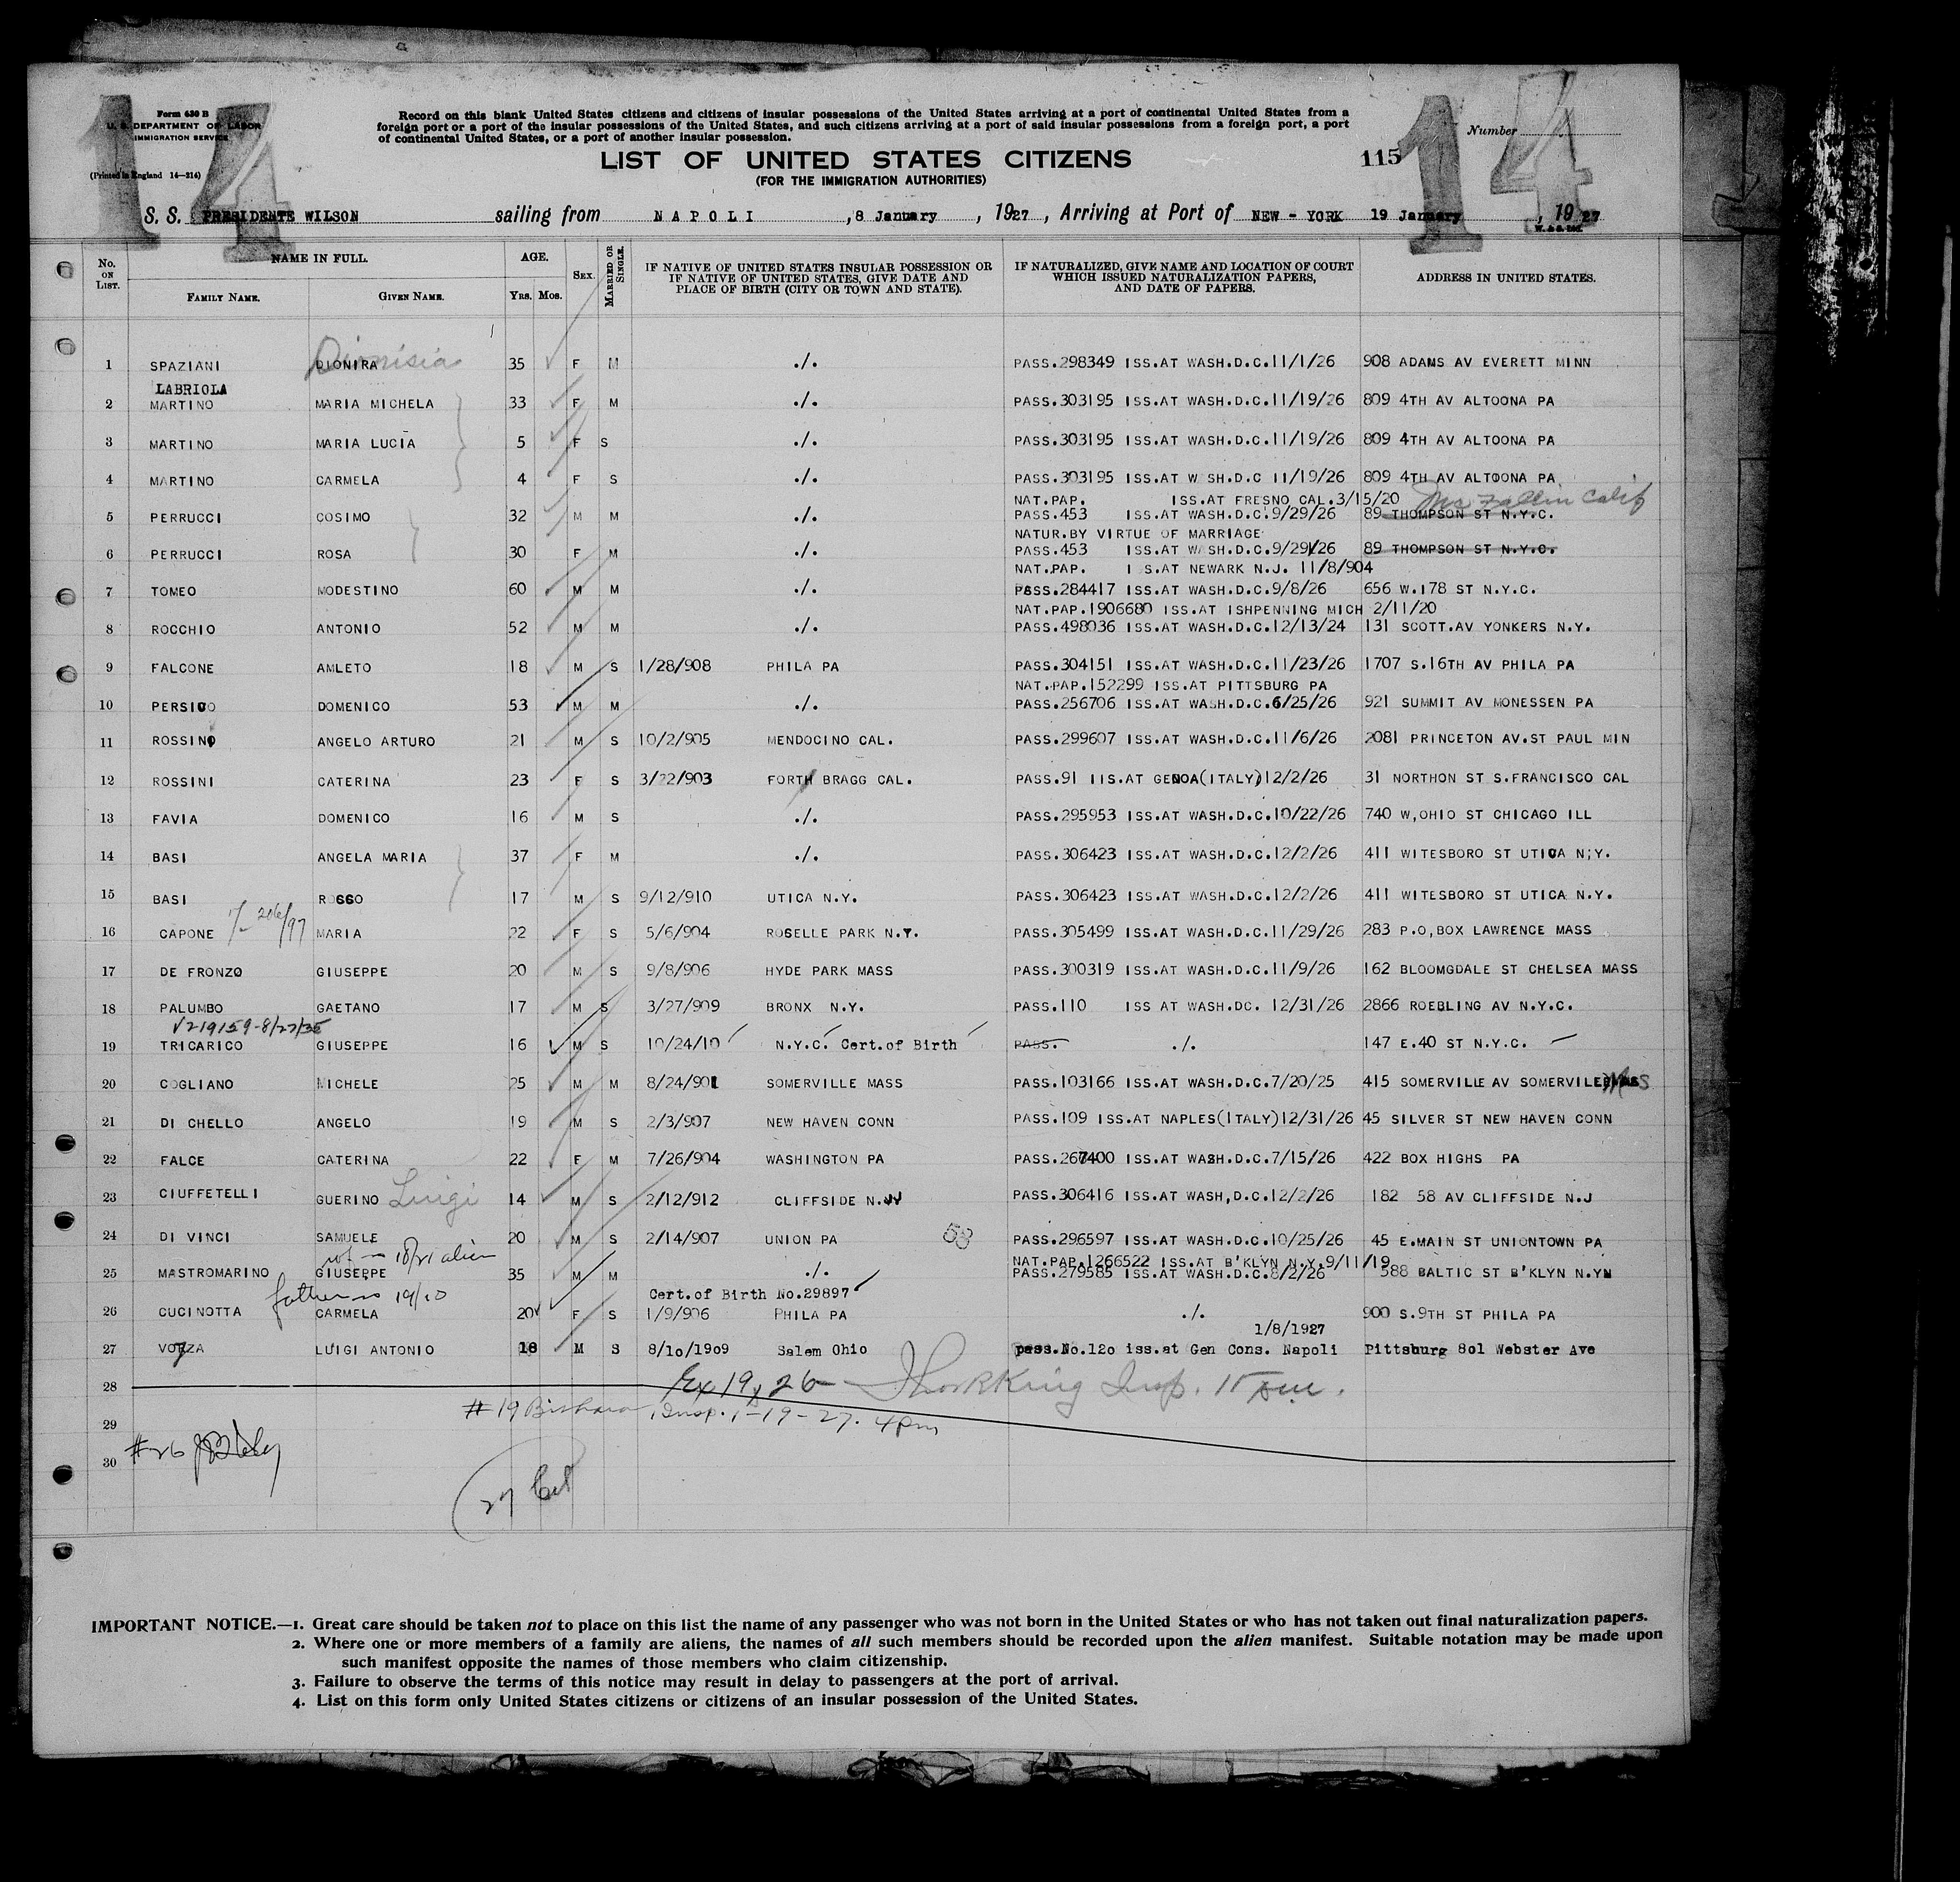 14
14
Form 630 B
U. S. DEPARTMENT OF LABOR
IMMIGRATION SERVICE
(Printed in England 14—214)
Record on this blank United States citizens and citizens of insular possessions of the United States arriving at a port of continental United States from a
foreign port or a port of the insular possessions of the United States, and such citizens arriving at a port of said insular possessions from a foreign port, a port
of continental United States, or a port of another insular possession.
Number
LIST OF UNITED STATES CITIZENS
115
(FOR THE IMMIGRATION AUTHORITIES)
S. S. PRESIDENTE WILSON sailing from NAPOLI , 8 January , 1927 , Arriving at Port of NEW - YORK 19 January , 1927
No. ON LIST. NAME IN FULL. AGE. SEX. MARRIED OR SINGLE. IF NATIVE OF UNITED STATES INSULAR POSSESSION OR IF NATIVE OF UNITED STATES, GIVE DATE AND PLACE OF BIRTH (CITY OR TOWN AND STATE). IF NATURALIZED, GIVE NAME AND LOCATION OF COURT WHICH ISSUED NATURALIZATION PAPERS, AND DATE OF PAPERS. ADDRESS IN UNITED STATES.
FAMILY NAME. GIVEN NAME. YRS. MOS.
Dionisia
1 SPAZIANI DIONIRA 35 F M ./. PASS.298349 ISS.AT WASH.D.C.11/1/26 908 ADAMS AV EVERETT MINN
LABRIOLA
2 MARTINO MARIA MICHELA 33 F M ./. PASS.303195 ISS.AT WASH.D.C.11/19/26 809 4TH AV ALTOONA PA
3 MARTINO MARIA LUCIA 5 F S ./. PASS.303195 ISS.AT WASH.D.C.11/19/26 809 4TH AV ALTOONA PA
4 MARTINO CARMELA 4 F S ./. PASS.303195 ISS.AT W SH.D.C 11/19/26 809 4TH AV ALTOONA PA
NAT.PAP. ISS.AT FRESNO CAL.3/15/20 Calif
5 PERRUCCI COSIMO 32 M M ./. PASS.453 ISS.AT WASH.D.C.9/29/26 89 THOMPSON ST N.Y.C.
NATUR.BY VIRTUE OF MARRIAGE
6 PERRUCCI ROSA 30 F M ./. PASS.453 ISS.AT WASH.D.C.9/29/26 89 THOMPSON ST N.Y.C.
NAT.PAP. I S.AT NEWARK N.J. 11/8/904
7 TOMEO MODESTINO 60 M M ./. PASS.284417 ISS.AT WASH.D.C.9/8/26 656 W.178 ST N.Y.C.
NAT.PAP.1906680 ISS.AT ISHPENNING MICH 2/11/20
8 ROCCHIO ANTONIO 52 M M ./. PASS.498036 ISS.AT WASH.D.C.12/13/24 131 SCOTT.AV YONKERS N.Y.
9 FALCONE AMLETO 18 M S 1/28/908 PHILA PA PASS.304151 ISS.AT WASH.D.C.11/23/26 1707 S.16TH AV PHILA PA
NAT.PAP.152299 ISS.AT PITTSBURG PA
10 PERSICO DOMENICO 53 M M ./. PASS.256706 ISS.AT WASH.D.C.6/25/26 921 SUMMIT AV MONESSEN PA
11 ROSSINO ANGELO ARTURO 21 M S 10/2/905 MENDOCINO CAL. PASS.299607 ISS.AT WASH.D.C.11/6/26 2081 PRINCETON AV.ST PAUL MIN
12 ROSSINI CATERINA 23 F S 3/22/903 FORTH BRAGG CAL. PASS.91 IIS.AT GENOA(ITALY)12/2/26 31 NORTHON ST S.FRANCISCO CAL
13 FAVIA DOMENICO 16 M S ./. PASS.295953 ISS.AT WASH.D.C.10/22/26 740 W,OHIO ST CHICAGO ILL
14 BASI ANGELA MARIA 37 F M ./. PASS.306423 ISS.AT WASH.D.C.12/2/26 411 WITESBORO ST UTICA N;Y.
15 BASI ROSSO 17 M S 9/12/910 UTICA N.Y. PASS.306423 ISS.AT WASH.D.C.12/2/26 411 WITESBORO ST UTICA N.Y.
16 CAPONE MARIA 22 F S 5/6/904 ROSELLE PARK N.Y. PASS.305499 ISS.AT WASH.D.C.11/29/26 283 P.O,BOX LAWRENCE MASS
17 DE FRONZO GIUSEPPE 20 M S 9/8/906 HYDE PARK MASS PASS.300319 ISS.AT WASH.D.C.11/9/26 162 BLOOMGDALE ST CHELSEA MASS
18 PALUMBO GAETANO 17 M S 3/27/909 BRONX N.Y. PASS.110 ISS AT WASH.DC. 12/31/26 2866 ROEBLING AV N.Y.C.
V219159-8/27/35
19 TRICARICO GIUSEPPE 16 M S 10/24/10 N.Y.C. Cert.of Birth PASS. ./. 147 E.40 ST N.Y.C.
20 COGLIANO MICHELE 25 M M 8/24/901 SOMERVILLE MASS PASS.103166 ISS.AT WASH.D.C.7/20/25 415 SOMERVILLE AV SOMERVILE Mas
21 DI CHELLO ANGELO 19 M S 2/3/907 NEW HAVEN CONN PASS.109 ISS.AT NAPLES(ITALY)12/31/26 45 SILVER ST NEW HAVEN CONN
22 FALCE CATERINA 22 F M 7/26/904 WASHINGTON PA PASS.267400 ISS.AT WASH.D.C.7/15/26 422 BOX HIGHS PA
23 CIUFFETELLI GUERINO Luigi 14 M S 2/12/912 CLIFFSIDE N.J PASS.306416 ISS.AT WASH,D.C.12/2/26 182 58 AV CLIFFSIDE N.J
24 DI VINCI SAMUELE 20 M S 2/14/907 UNION PA 58 PASS.296597 ISS.AT WASH.D.C.10/25/26 45 E.MAIN ST UNIONTOWN PA
alien NAT.PAP.1266522 ISS.AT B'KLYN N.Y.9/11/19
25 MASTROMARINO GIUSEPPE 35 M M ./. PASS.279585 ISS.AT WASH.D.C.8/2/26 588 BALTIC ST B'KLYN N.Y
father 19/10 Cert.of Birth No.29897
26 CUCINOTTA CARMELA 20 F S 1/9/906 PHILA PA ./. 900 S.9TH ST PHILA PA
1/8/1927
27 VOZZA LUIGI ANTONIO 18 M S 8/10/1909 Salem Ohio pass.No.120 iss.at Gen Cons. Napoli Pittsburg 801 Webster Ave
28 Ex 19, 26 King Insp.
29 #19 Insp. 1-19-27. 4pm
#26
30
27
IMPORTANT NOTICE.—1. Great care should be taken not to place on this list the name of any passenger who was not born in the United States or who has not taken out final naturalization papers.
2. Where one or more members of a family are aliens, the names of all such members should be recorded upon the alien manifest. Suitable notation may be made upon
such manifest opposite the names of those members who claim citizenship.
3. Failure to observe the terms of this notice may result in delay to passengers at the port of arrival.
4. List on this form only United States citizens or citizens of an insular possession of the United States.